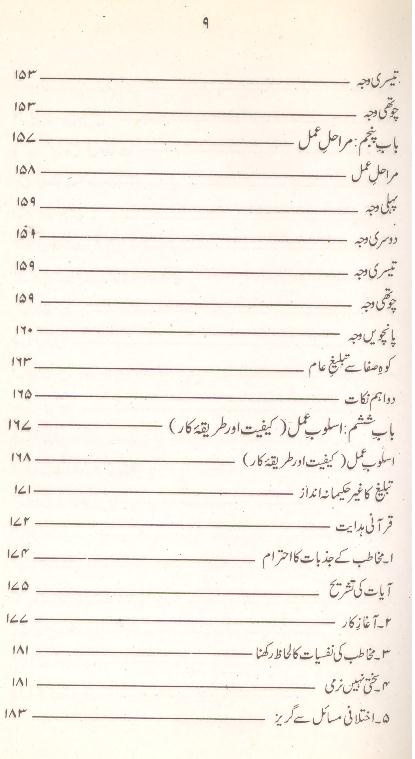 ۹
تیسری وجہ ۱۵۳
چوتھی وجہ ۱۵۳
باب پنجم: مراحلِ عمل ۱۵۷
مراحلِ عمل ۱۵۸
پہلی وجہ ۱۵۹
دوسری وجہ ۱۵۹
تیسری وجہ ۱۵۹
چوتھی وجہ ۱۵۹
پانچویں وجہ ۱۶۰
کوہِ صفا سے تبلیغِ عام ۱۶۳
دو اہم نکات ۱۶۵
باب ششم: اسلوبِ عمل (کیفیت اور طریقۂ کار) ۱۶۷
اسلوبِ عمل (کیفیت اور طریقۂ کار) ۱۶۸
تبلیغ کا غیر حکیمانہ انداز ۱۷۱
قرآنی ہدایت ۱۷۲
۱۔ مخاطب کے جذبات کا احترام ۱۷۴
آیات کی تشریح ۱۷۵
۲۔ آغازِ کار ۱۷۷
۳۔ مخاطب کی نفسیات کا لحاظ رکھنا ۱۸۱
۴۔ سختی نہیں نرمی ۱۸۱
۵۔ اختلافی مسائل سے گریز ۱۸۳